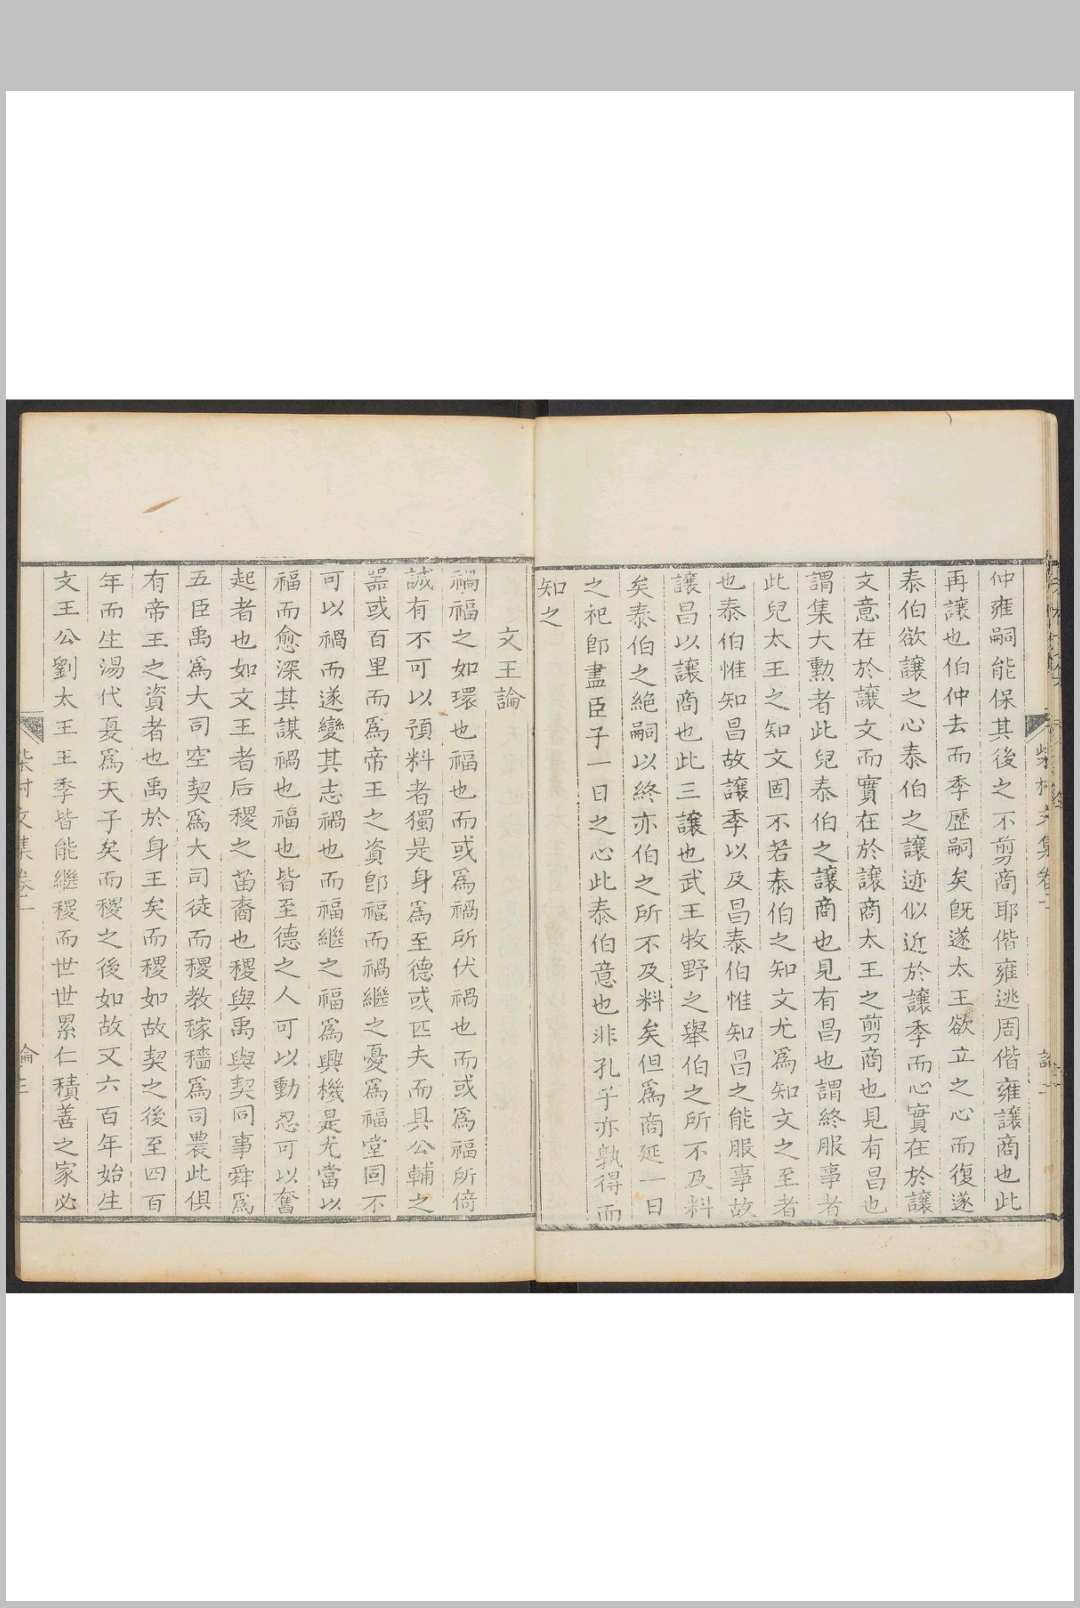 仲雍嗣能保其後之不剪商耶偕雍逃周偕雍讓商也此
再讓也伯仲去而季歷嗣矣旣遂太王欲立之心而復遂
泰伯欲讓之心泰伯之讓迹似近於讓季而心實在於讓
文意在於讓文而實在於讓商太王之剪商也見有昌也
謂集大勲者此兒泰伯之讓商也見有昌也謂終服事者
此兒太王之知文固不若泰伯之知文尤爲知文之至者
也泰伯惟知昌故讓季以及昌泰伯惟知昌之能服事故
讓昌以讓商也此三讓也武王牧野之舉伯之所不及料
矣泰伯之絕嗣以終亦伯之所不及料矣但爲商延一日
之祀卽盡臣子一日之心此泰伯意也非孔子亦孰得而
知之
文王論
禍福之如環也福也而或爲禍所伏禍也而或爲福所倚
誠有不可以預料者獨是身爲至德或匹夫而具公輔之
器或百里而爲帝王之資卽福而禍繼之憂爲福堂固不
可以禍而遂變其志禍也而福繼之福爲興機是尤當以
福而愈深其謀禍也福也皆至德之人可以動忍可以奮
起者也如文王者后稷之苗裔也稷與禹與契同事舜爲
五臣禹爲大司空契爲大司徒而稷教稼穡爲司農此俱
有帝王之資者也禹於身王矣而稷如故契之後至四百
年而生湯代夏爲天子矣而稷之後如故又六百年始生
文王公劉太王王季皆能繼稷而世世累仁積善之家必
柴村文集卷二
論